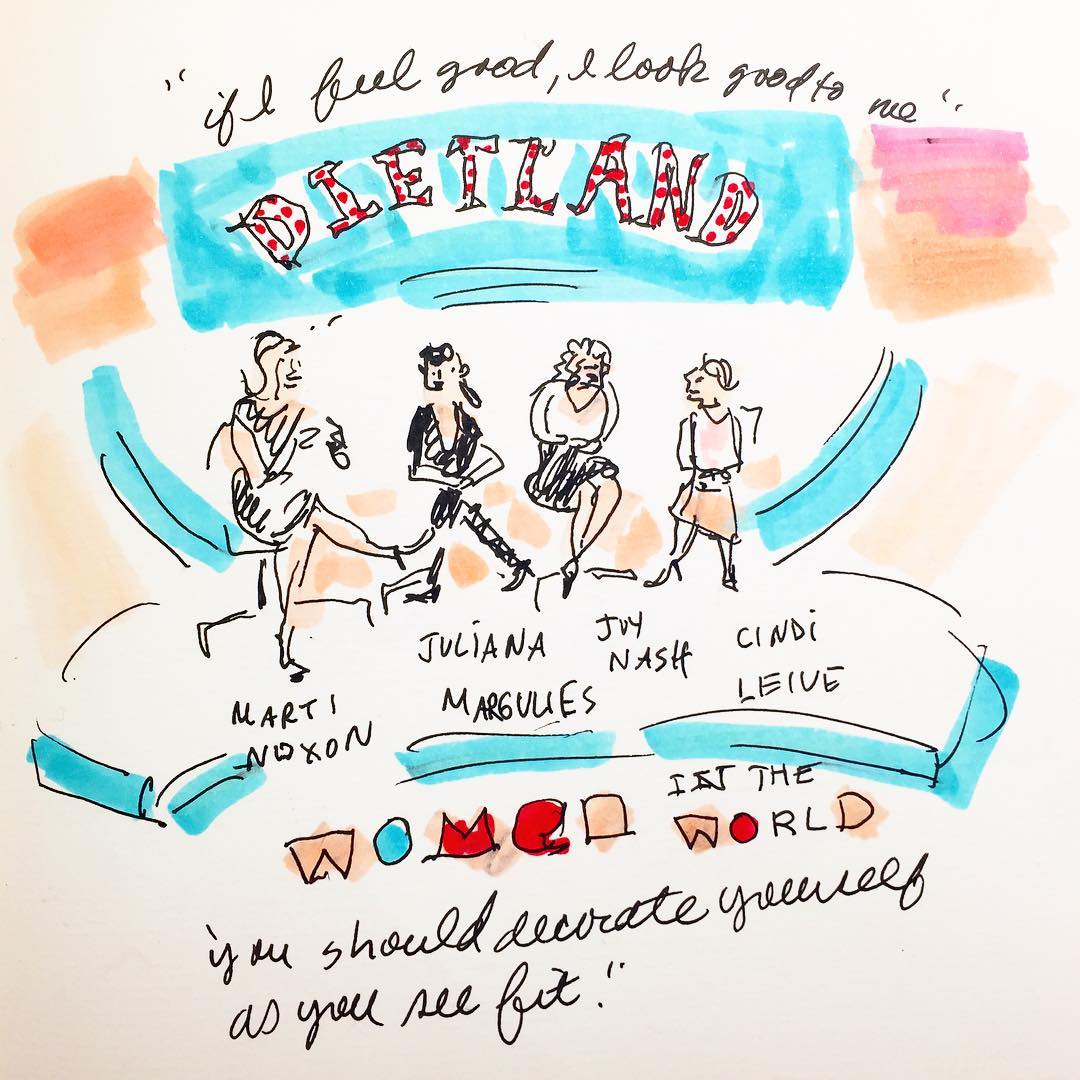 "if I feel good, I look good to me".
DIETLAND
MARTI
NOXON
JULIANA
MARGULIES
JOY
NASH
CINDI
LEIVE
WOMEN IN THE WORLD
"you should decorate yourself
as you see fit."